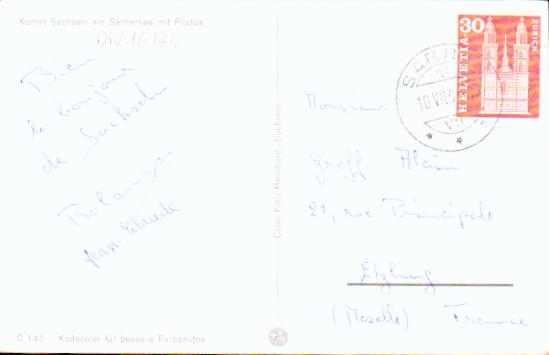 Kurort Sachseln am Sarnersee mit Pilatus
DIV 16174
Bien
le bonjour
de Sachseln
Jean-Claude
C 145 Kodacolor für bessere Farbphotos
Color-Foto Reinhard, Sachseln
30
HELVETIA
ZÜRICH
SAR
10.VII.
Monsieur
Greff Alain
21, rue Principale
Etzling
(Moselle) France